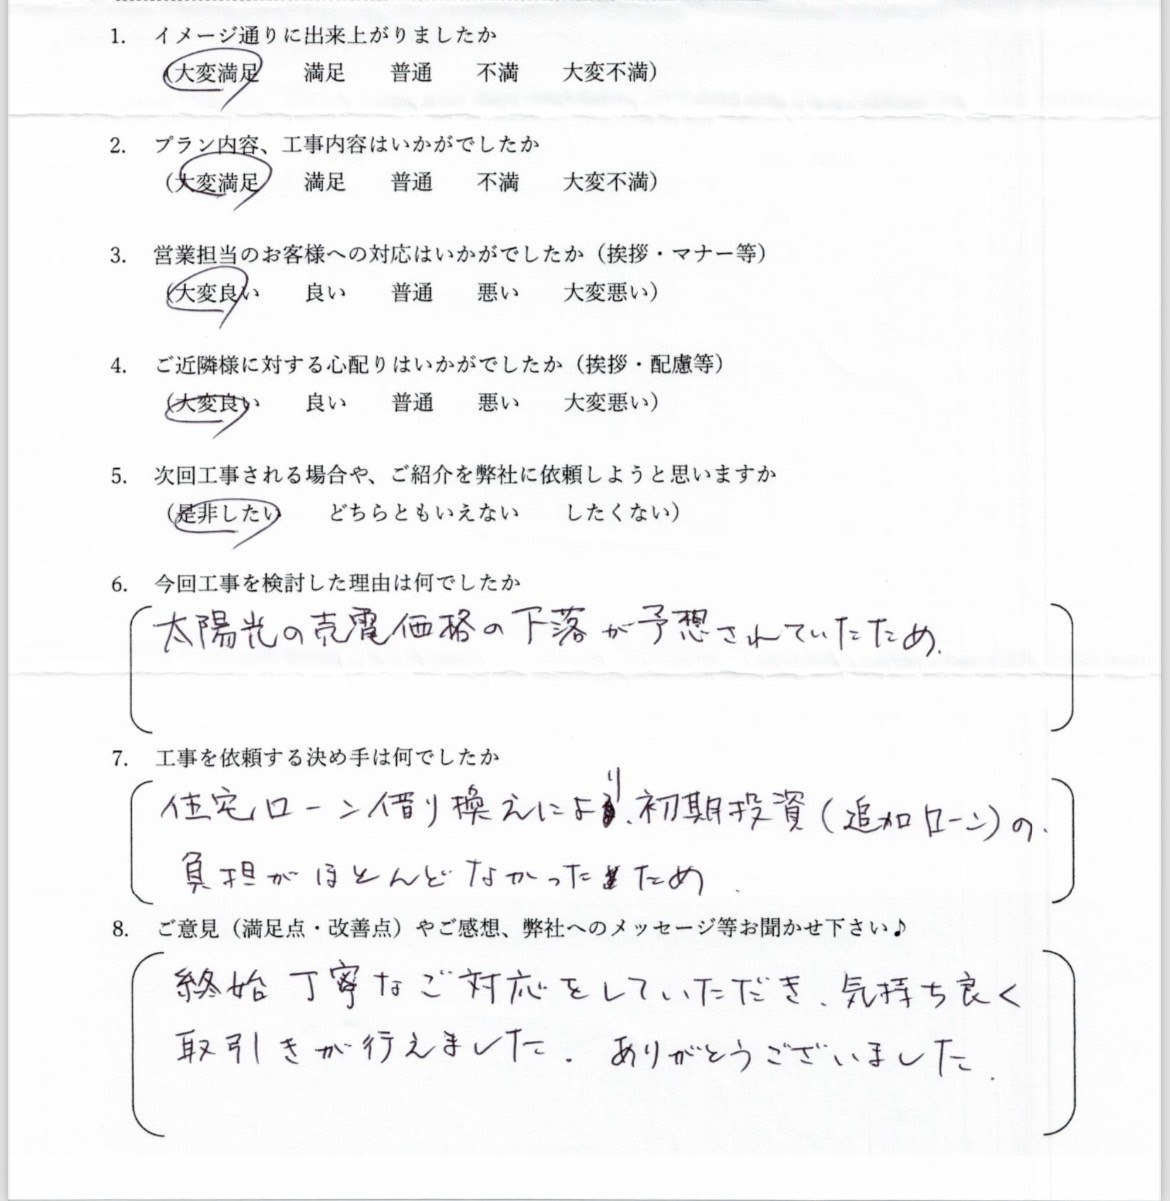 1. イメージ通りに出来上がりましたか
(大変満足 満足 普通 不満 大変不満)
2. プラン内容、工事内容はいかがでしたか
(大変満足 満足 普通 不満 大変不満)
3. 営業担当のお客様への対応はいかがでしたか（挨拶・マナー等）
(大変良い 良い 普通 悪い 大変悪い)
4. ご近隣様に対する心配りはいかがでしたか（挨拶・配慮等）
(大変良い 良い 普通 悪い 大変悪い)
5. 次回工事される場合や、ご紹介を弊社に依頼しようと思いますか
(是非したい どちらともいえない したくない)
6. 今回工事を検討した理由は何でしたか
太陽光の売電価格の下落が予想されていたため.
7. 工事を依頼する決め手は何でしたか
住宅ローン借り換えにより、初期投資(追加ローン)の
負担がほとんどなかったため.
8. ご意見（満足点・改善点）やご感想、弊社へのメッセージ等お聞かせ下さい♪
終始丁寧なご対応をしていただき、気持ち良く
取引きが行えました. ありがとうございました.